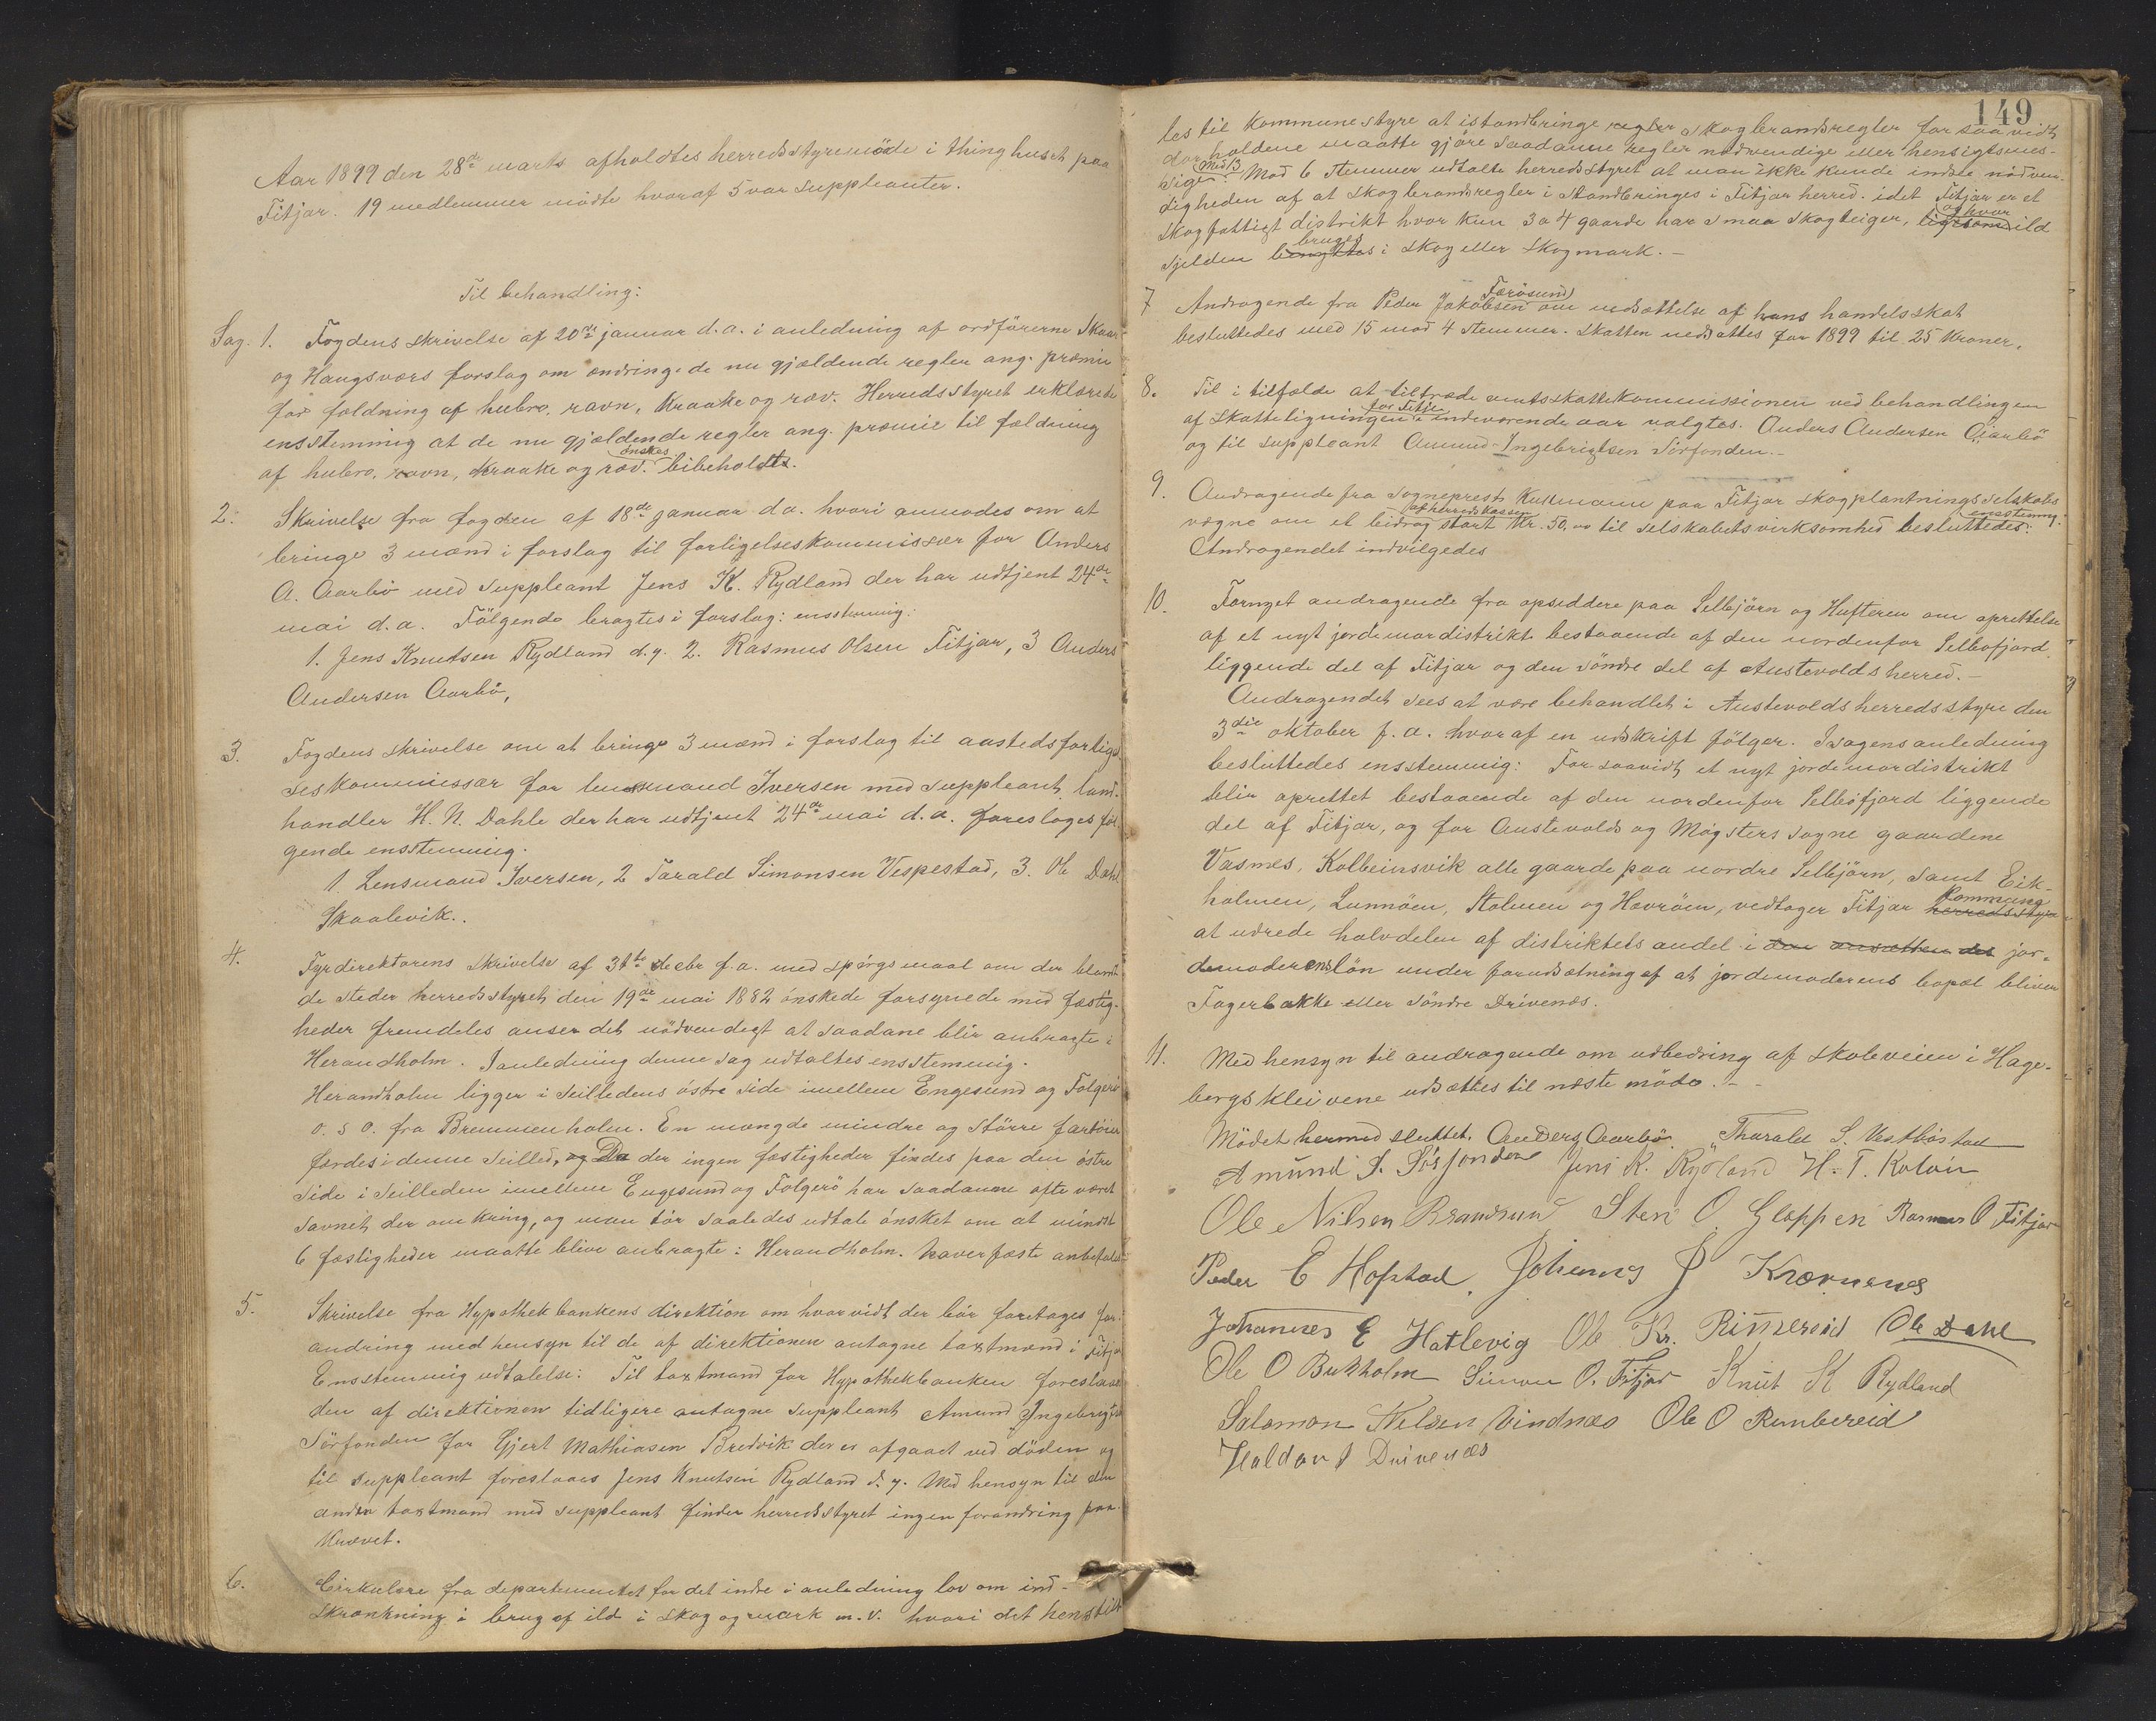 Aar 1899 den 28de marts afholdtes herredsstyremöde i thinghuset paa
Fitjar. 19 medlemmer mödte hvoraf 5 var suppleanter.
Til behandling:
Sag. 1. Fogdens skrivelse af 20de januar d.a. i anledning af ordförerne Skaar
og Haugsværs forslag om ændring. de nu gjældende regler ang. præmie
for fældning af hubro, ravn, kraake og ræv. Herredsstyret erklærede
ensstemmig at de nu gjældende regler ang. præmie til fældning
af hubro, ravn, kraake og ræv. önskes bibeholdts.
2. Skrivelse fra fogden af 18de januar d.a. hvori anmodes om at
bringe 3 mænd i forslag til forligelseskommissær for Anders
A. Aarbö med suppleant Jens K. Rydland der har udtjent 24de
mai d.a. Fölgende bragtes i forslag: ensstemmig:
1. Jens Knutsen Rydland d.y. 2. Rasmus Olsen Fitjar, 3 Anders
Andersen Aarbö,
3. Fogdens skrivelse om at bringe 3 mænd i forslag til aastedsforligel
seskommissær for lensmand Iversen med suppleant land-
handler H. N. Dahle der har udtjent 24de mai d.a. foresloges föl
gende ensstemmig.
1. Lensmand Iversen, 2 Tarald Simonsen Vespestad, 3. Ole Dahl
Skaalevik..
4. Fyrdirektörens skrivelse af 31te decbr f.a. med spörgsmaal om der blandt
de steder herredsstyret den 19de mai 1882 önskede forsynede med fæstig-
heder fremdeles anser det nödvendigt at saadane blir anbragte i
Herandholm. I anledning denne sag udtaltes ensstemmig.
Herandholm ligger i seilledens östre side imellem Engesund og Folgerö
o. s o. fra Bremmenholm. En mængde mindre og större fartöier
færdes i denne seilled, og Da der ingen fæstigheder findes paa den östre
side i seilleden imellem Engesund og Folgerö har saadanne ofte været
savnet der omkring, og man tör saaledes udtale önsket om at mindst
6 fæstigheder maatte blive anbragte i Herandholm. Naverfæste anbefales
5. Skrivelse fra Hypothekbankens direktion om hvorvidt der bör foretages for-
andring med hensyn til de af direktionen antagne taxtmænd i Fitjar
Ensstemmig udtalelse: Til taxtmand for Hypothekbanken foreslaaes
den af direktionen tidligere antagne suppleant Amund Ingebrigtsen
Sörfonden for Gjert Mathiasen Bredvik der er afgaaet ved döden og
til suppleant foreslaaes Jens Knutsen Rydland d.y. Med hensyn til den
anden taxtmand med suppleant finder herredsstyret ingen forandring paa-
krævet.
6. Cirkulære fra departementet for det indre i anledning lov om ind-
skrænkning i brug af ild i skog og mark m.v. hvori det henstil
149
les til kommunestyre at istandbringe regler skogbrandsregler forsaavidt
forholdene maatte gjöre saadanne regler nödvendige eller hensigtsmes-
sige. Med 13 Mod 6 stemmer udtalte herredsstyret at man ikke kunde indse nödven-
digheden af at skogbrandsregler istandbringes i Fitjar herred. idet Fitjar er et
skogfattigt distrikt hvor kun 3 a 4 gaarde har smaa skogteiger, ligesom og hvor ild
sjelden benyttes bruges i skog eller skogmark. -
7 Andragende fra Peder Jakobsen Færösund om nedsættelse af hans handelsskat
besluttedes med 15 mod 4 stemmer. Skatten nedsættes for 1899 til 25 kroner.
8. Til i tilfælde at tiltræde amtsskattekommissionen ved behandlingen
af skatteligningen for Fitje i indeværende aar valgtes. Anders Andersen Aarbö
og til suppleant Amund Ingebrigtsen Sörfonden.-
9. Andragende fra sogneprest Kullmann paa Fitjar skogplantningsselskabs
vægne om et bidrag af herredskassen stort Kr. 50,00 til selskabets virksomhed besluttedes: ensstemmig:
Andragendet indvilgedes
10. Fornyet andragende fra opsiddere paa Selbjörn og Hufteren om oprettelse
af et nyt jordemordistrikt bestaaende af den nordenfor Selbofjord
liggende del af Fitjar og den söndre del af Austevolds herred.-
Andragendet sees at være behandlet i Austevolds herredsstyre den
3die oktober f.a. hvoraf en udskrift fölger. I sagens anledning
besluttedes ensstemmig: For saavidt et nyt jordemordistrikt
blir oprettet bestaaende af den nordenfor Selböfjord liggende
del af Fitjar, og for Austevolds og Mögsters sogne gaardene
Vasnes, Kolbeinsvik alle gaarde paa nordre Selbjörn, samt Eik-
holmen, Lunnöen, Stolmen og Hevröen, vedtager Fitjar herredsstyre Kommune
at udrede halvdelen af distriktets andel i den ansatten des jor-
demoderens lön under forudsætning af at jordemoderens bopæl bliver
Fagerbakke eller söndre Drivenæs.
11. Med hensyn til andragende om udbedring af skoleveien i Hage-
bergskleivene udsættes til næste möde. - -
Mödet hermed sluttet. Anders Aarbö. Tharald S. Vestböstad
Amund I. Sörfonden Jens K. Rydland H. T. Koløen
Ole Nilsen Brandsund Sten O. Gloppen Rasmus O Fitjar
Peder E Hofstad. Johannes J Kræmenes
Johannes E Hatlevig Ole Kr. Rimmereid Ole Dahl
Ole O Bukholm Simon O. Fitjar Knut K Rydland
Salomon Nelsen Vindnæs Ole O Rimbereid
Haldor A Drivenæs